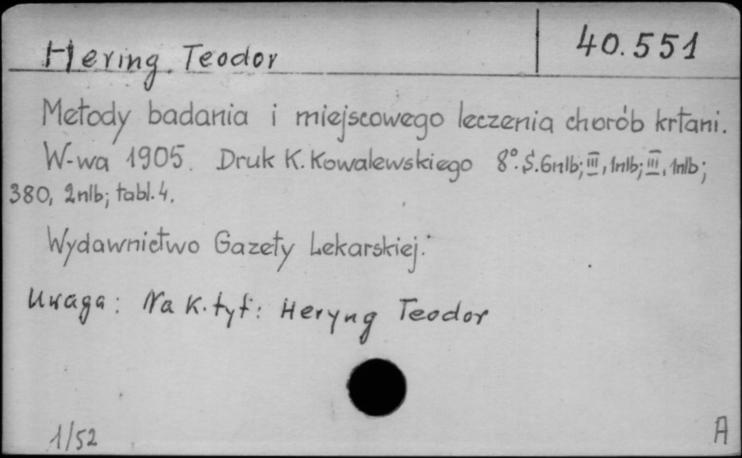 Hering Teodor
40.551
Metody badania i miejscowego leczenia chorób krtani.
W-wa 1905. Druk K. Kowalewskiego 8°. S. 6nlb; III, 1nlb; III, 1nlb;
380, 2nlb; tabl. 4.
Wydawnictwo Gazety Lekarskiej.
Uwaga: Na k. tyt: Heryng Teodor
1/52
A